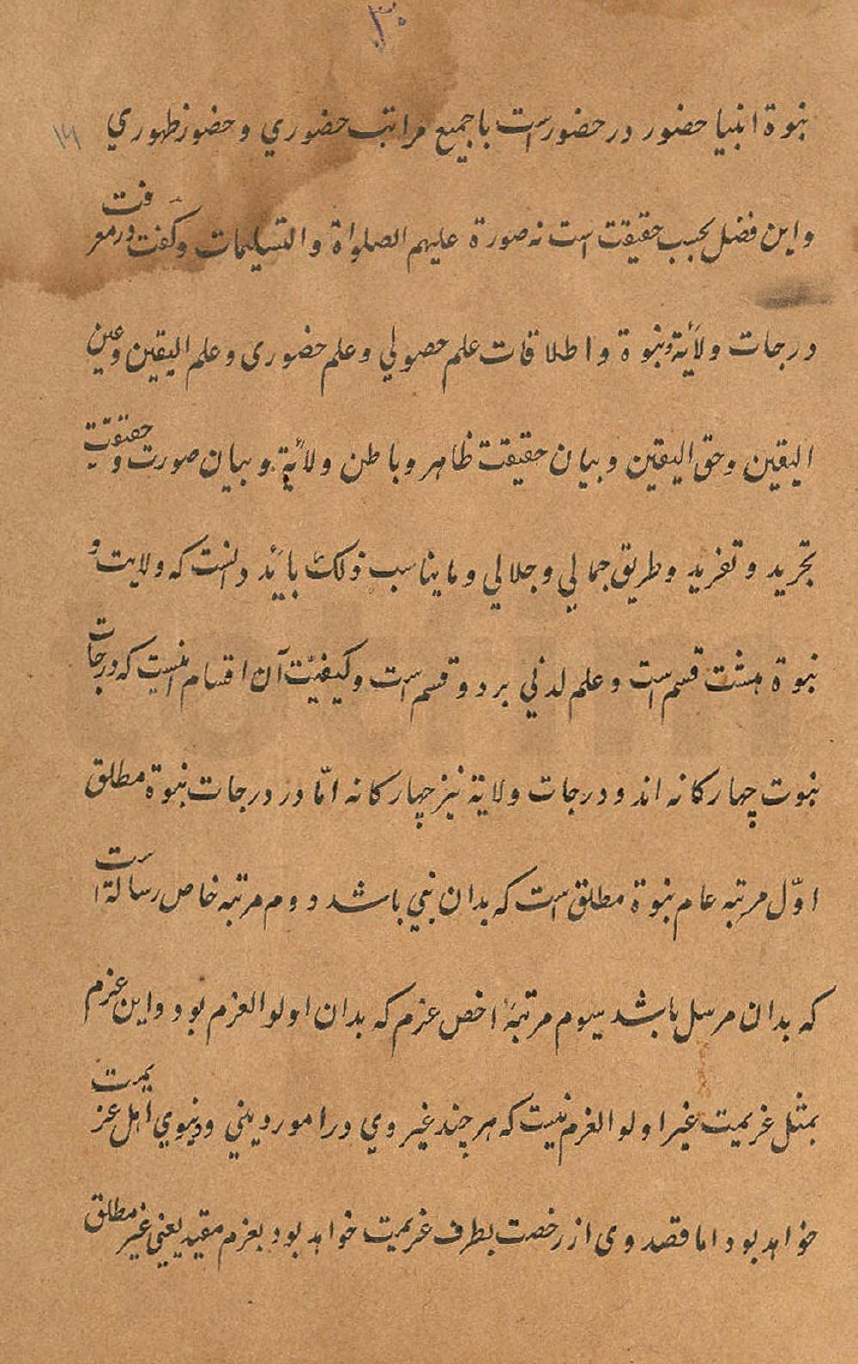 ۳۰
نبوة انبیا حضور در حضور است با جمیع مراتب حضوري و حضور ظهوري
واین فضل بحسب حقیقت است نه صورة علیهم الصلواة والتسلیمات وگفت در معرفت
درجات ولایة ونبوة واطلاقات علم حصولي وعلم حضوری وعلم الیقین وعین
الیقین وحق الیقین وبیان حقیقت ظاهر وباطن ولایة وبیان صورت وحقیقت
تجرید وتفرید وطریق جمالي وجلالي وما یناسب ذلک بائد دانست که ولایت و
نبوة هشت قسم است وعلم لدني بر دو قسم است وکیفیّت آن اقسام اینست که درجات
نبوت چهارکانه اند ودرجات ولایة نیز چهارکانه امّا در درجات نبوة مطلق
اوّل مرتبه عام نبوة مطلق است که بدان نبي باشد دوم مرتبه خاص رسالة است
که بدان مرسل باشد سیوم مرتبهٔ اخص عزم که بدان اولو العزم بود واین عزم
بمثل عزیمت غیر اولو العزم نیست که هر چند غیر وي در امور دیني ودنیوي اهل عزیمت
خواهد بود اما قصد وی از رخصت بطرف عزیمت خواهد بود بعزم مقید یعنی غیر مطلق